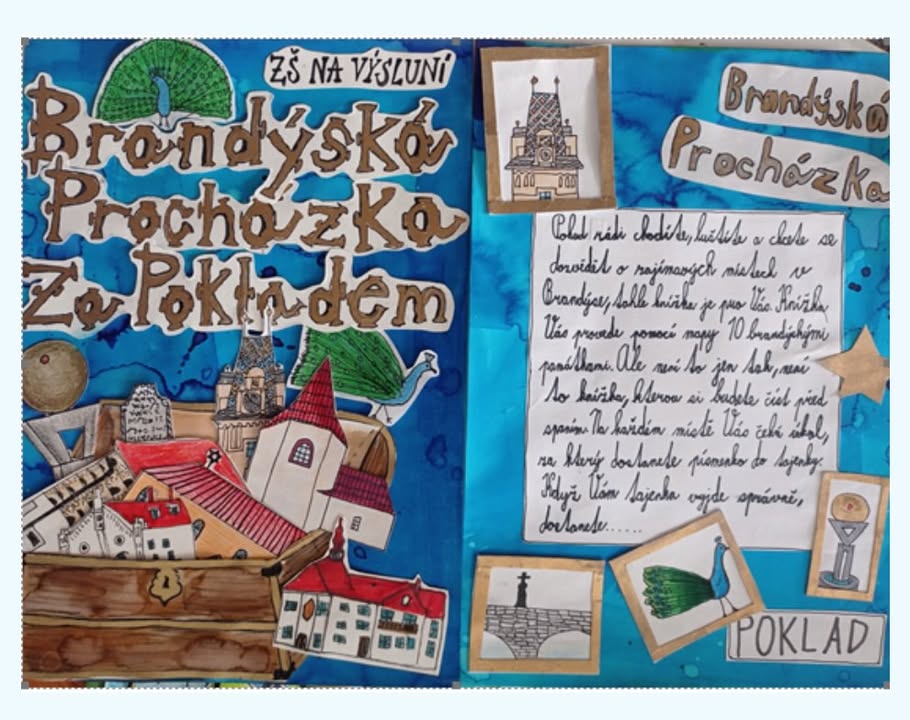 ZŠ NA VÝSLUNÍ
Brandýská
Procházka
Za Pokladem
Brandýská
Procházka
Pokud rádi chodíte, luštíte a chcete se
dozvědět o zajímavých místech v
Brandýse, tahle knížka je pro Vás. Knížka
Vás provede pomocí mapy 10 brandýskými
památkami. Ale není to jen tak, není
to knížka, kterou si budete číst před
spaním. Na každém místě Vás čeká úkol,
za který dostanete písmenko do tajenky.
Když Vám tajenka vyjde správně,
dostanete......
POKLAD